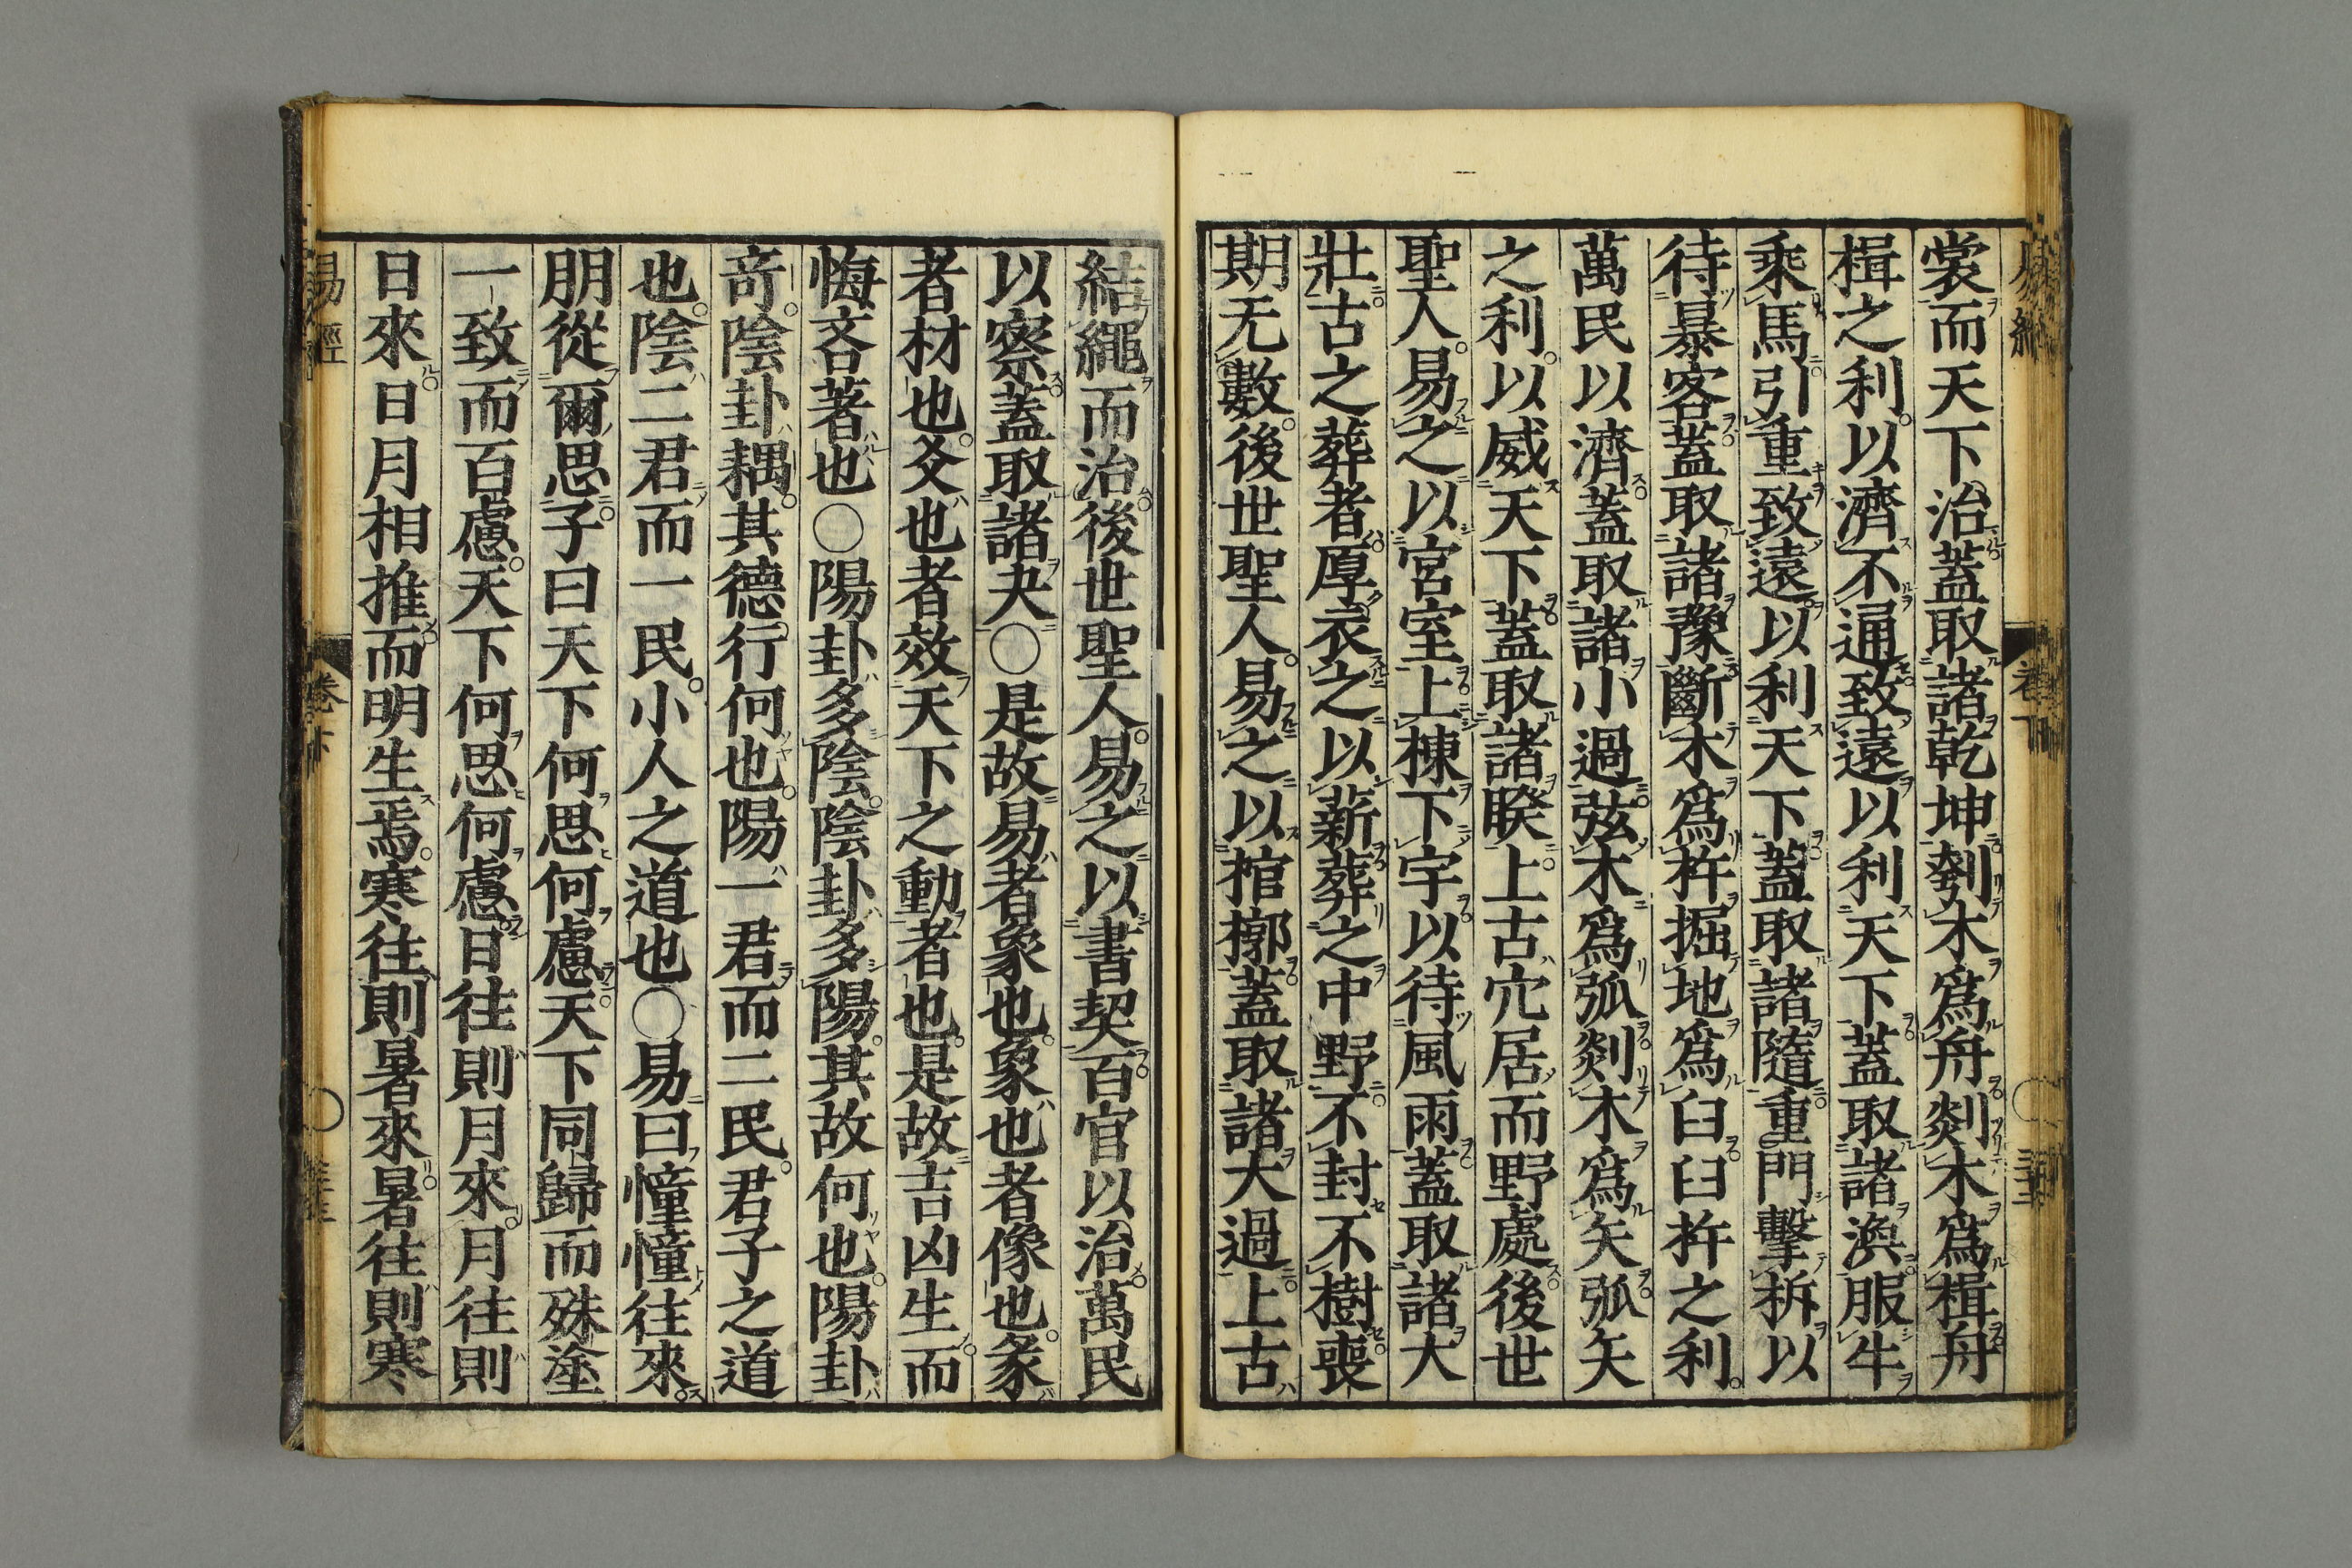 裳而天下治蓋取諸乾坤刳木爲舟剡木爲楫舟
楫之利以濟不通致遠以利天下蓋取諸渙服牛
乘馬引重致遠以利天下蓋取諸隨重門擊柝以
待暴客蓋取諸豫斷木爲杵掘地爲臼臼杵之利
萬民以濟蓋取諸小過弦木爲弧剡木爲矢弧矢
之利以威天下蓋取諸睽上古穴居而野處後世
聖人易之以宮室上棟下宇以待風雨蓋取諸大
壯古之葬者厚衣之以薪葬之中野不封不樹喪
期无數後世聖人易之以棺槨蓋取諸大過上古
結繩而治後世聖人易之以書契百官以治萬民
以察蓋取諸夬○是故易者象也象也者像也彖
者材也爻也者效天下之動者也是故吉凶生而
悔吝著也○陽卦多陰陰卦多陽其故何也陽卦
奇陰卦耦其德行何也陽一君而二民君子之道
也陰二君而一民小人之道也○易曰憧憧往來
朋從爾思子曰天下何思何慮天下同歸而殊塗
一致而百慮天下何思何慮日往則月來月往則
日來日月相推而明生焉寒往則暑來暑往則寒
易經 卷下